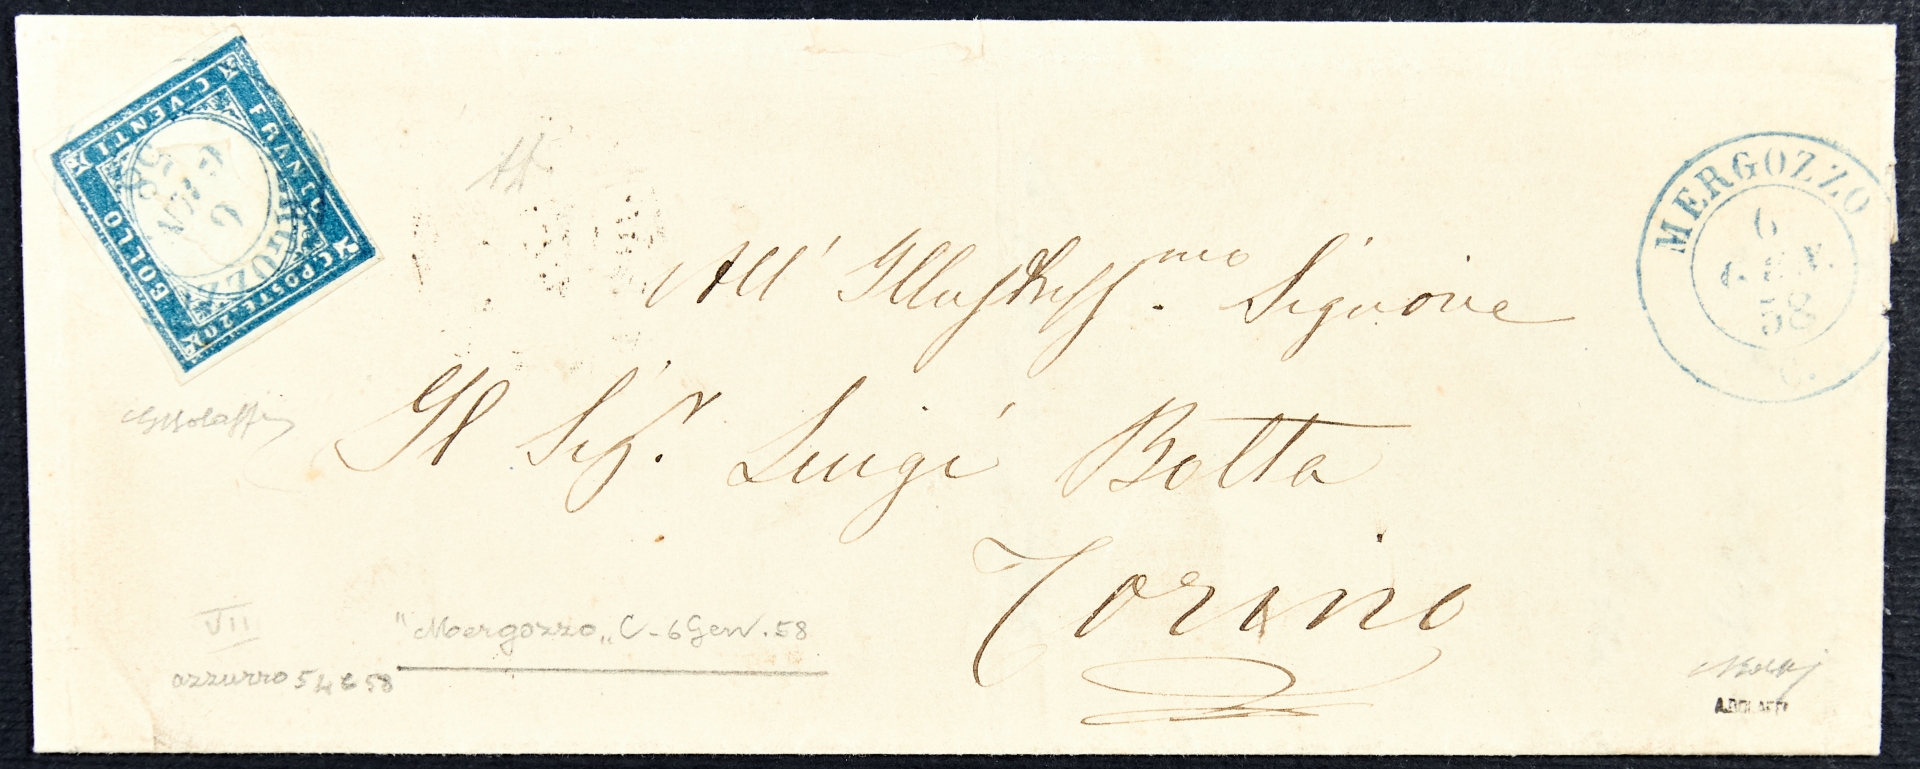 C. VENTI
FRANCO
C. POSTE. 20
BOLLO
6
GEN
58
MERGOZZO
MERGOZZO
6
GEN.
58
C.
All' Illustriss.mo Signore
Il Sig.r Luigi Botta
Torino
GBolaffi
VII
azzurro 54 e 58
"Mergozzo„ C - 6 Genn. 58
A.BOLAFFI